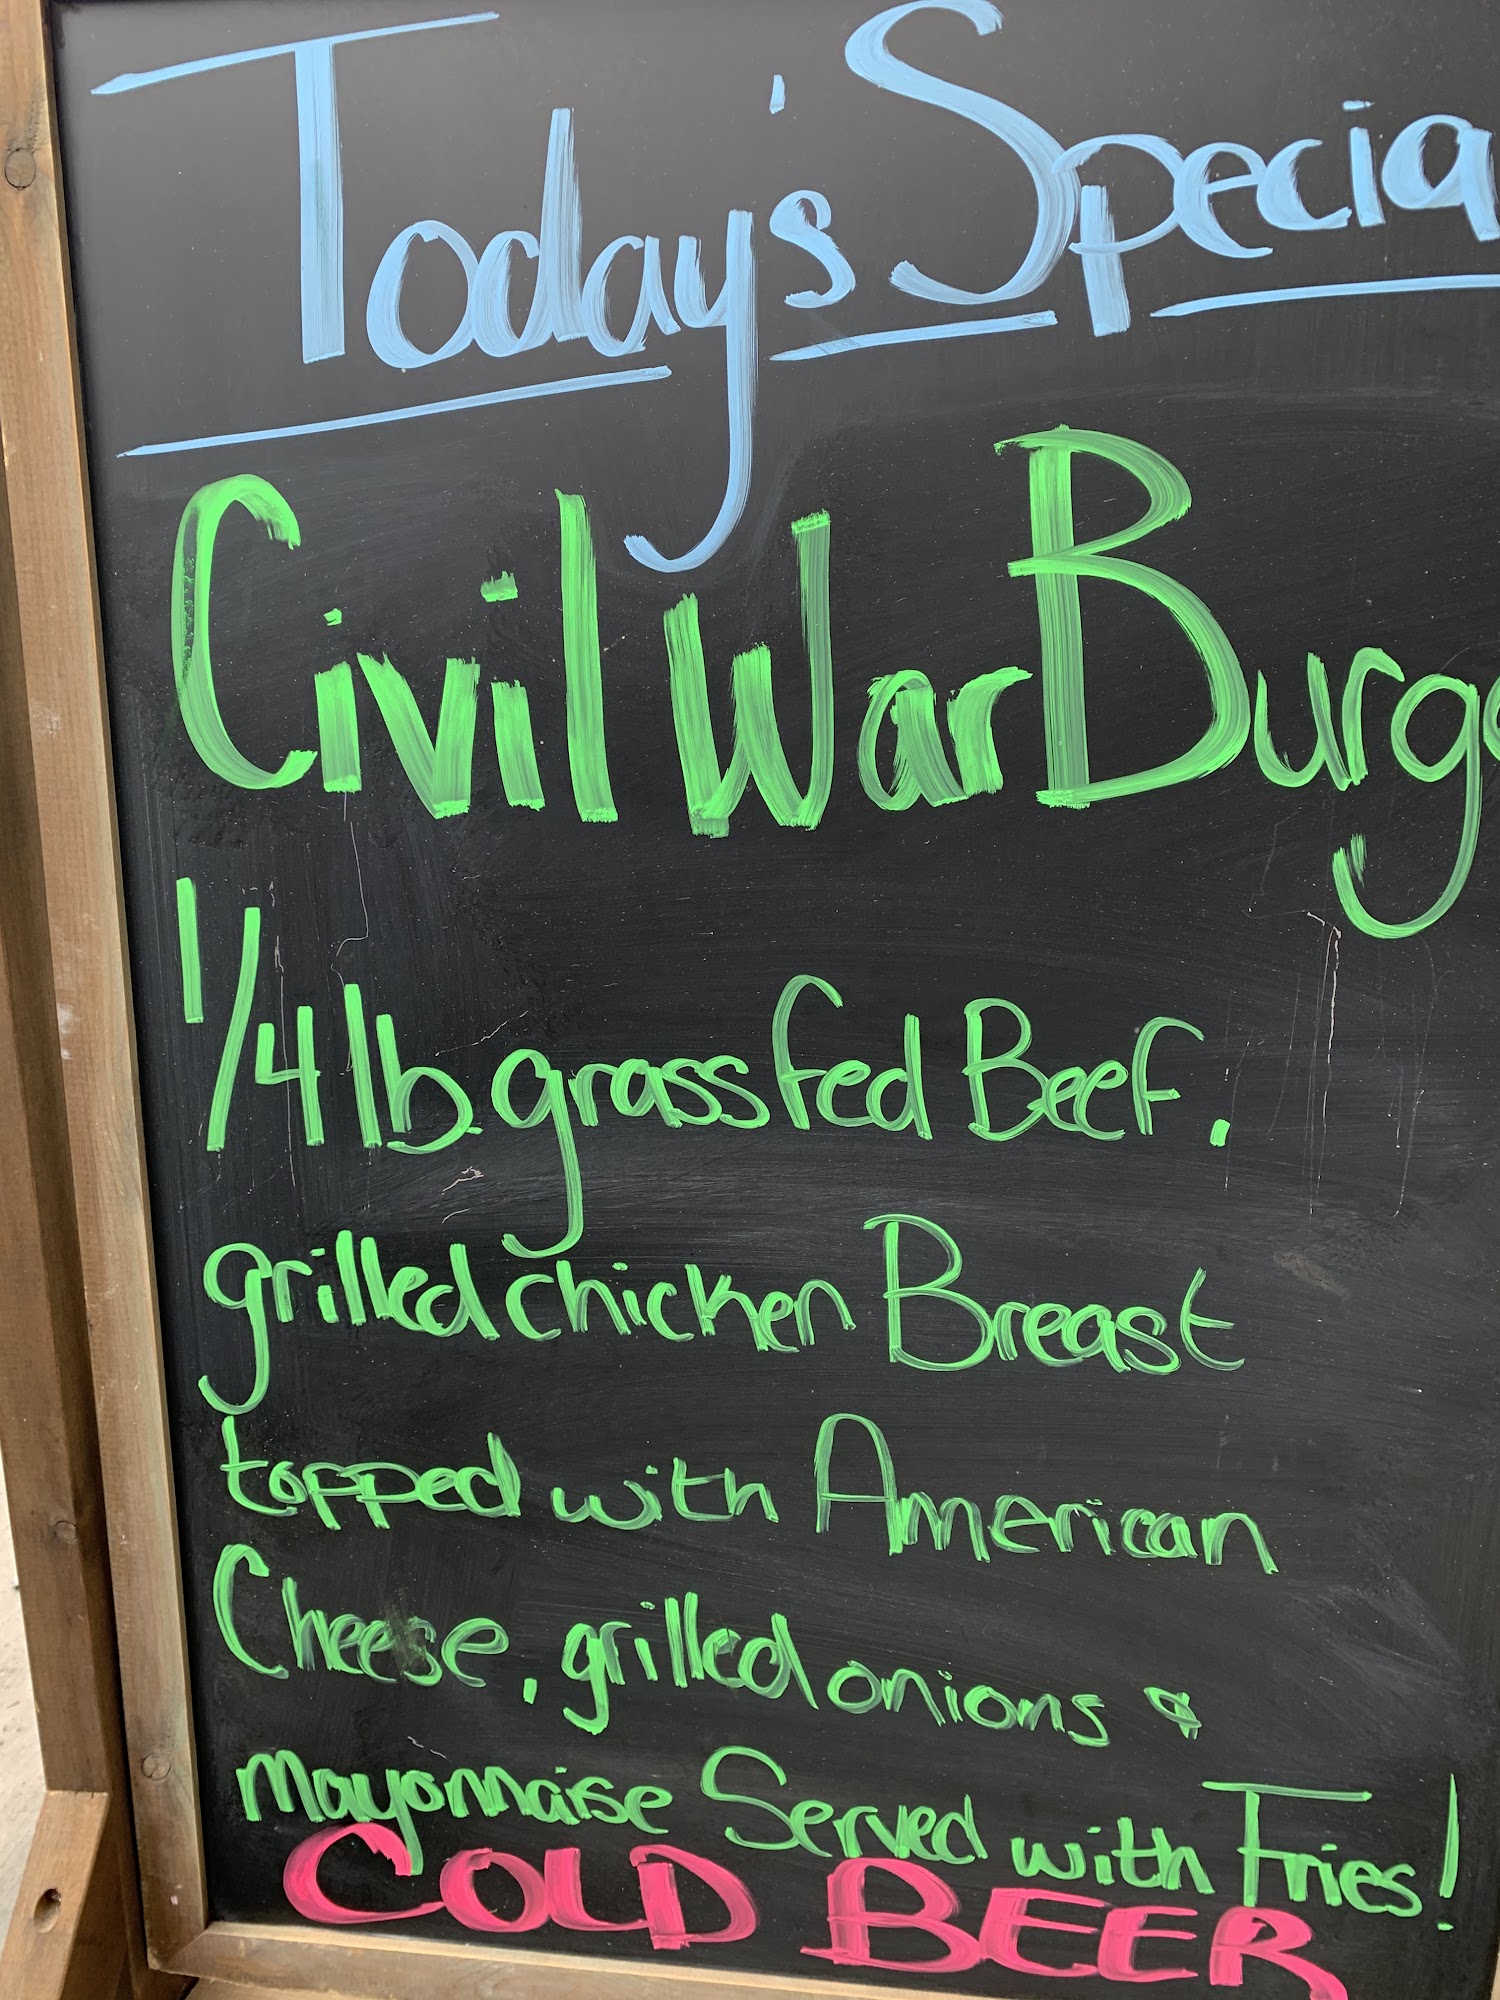 Today's Specia
Civil War Burge
1/4 lb. grass fed Beef.
grilled chicken Breast
topped with American
Cheese, grilled onions &
mayonnaise Served with Fries!
COLD BEER